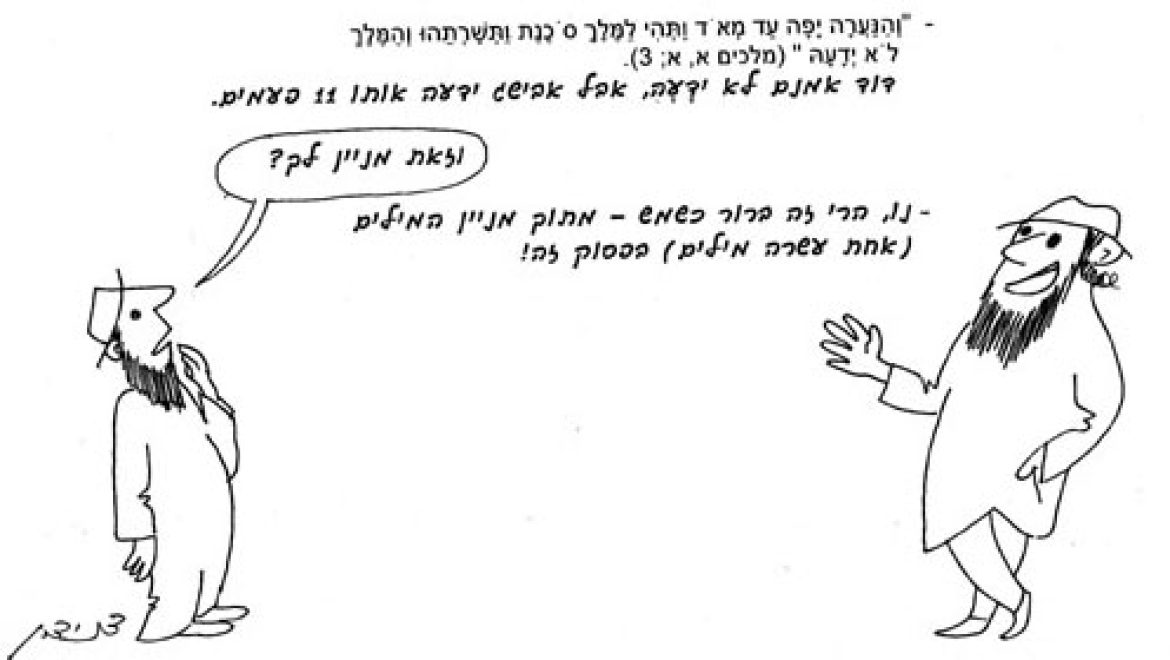 - "וְהַנַּעֲרָה יָפָה עַד מְאֹד וַתְּהִי לַמֶּלֶךְ סֹכֶנֶת וַתְּשָׁרְתֵהוּ וְהַמֶּלֶךְ
לֹא יְדָעָהּ" (מלכים א, א; 3).
דוד אמנם לא ידָעָהּ, אבל אבישג ידעה אותו 11 פעמים.
וזאת מניין לך?
- נו, הרי זה ברור כשמש – מתוך מניין המילים
(אחת עשרה מילים) בפסוק זה!